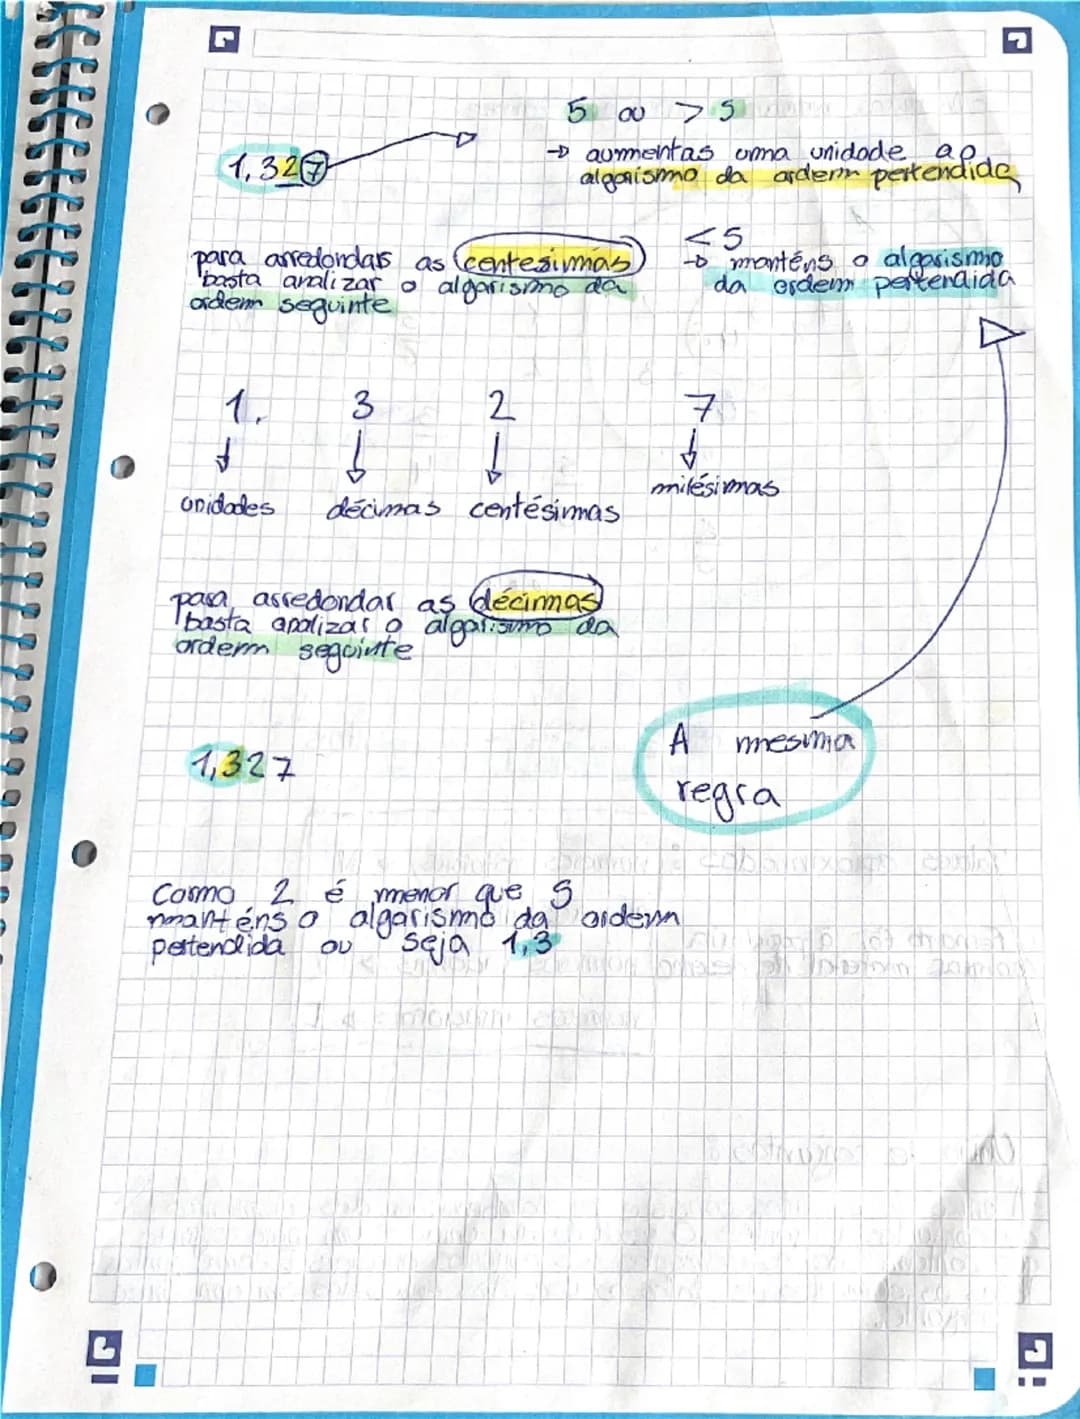 5 ou > 5
1,327
→ aumentas uma unidade ao
algarismo da ordem pertendida
< 5
→ manténs o algarismo
da ordem pertendida
para arredondar as centesimas
basta analizar o algarismo da
ordem seguinte
1, 3 2 7
unidades décimas centésimas milésimas
para arredondar as décimas
basta analizar o algarismo da
ordem seguinte
A mesma
regra
1,327
Como 2 é menor que 5
manténs o algarismo da ordem
pertendida ou seja 1,3